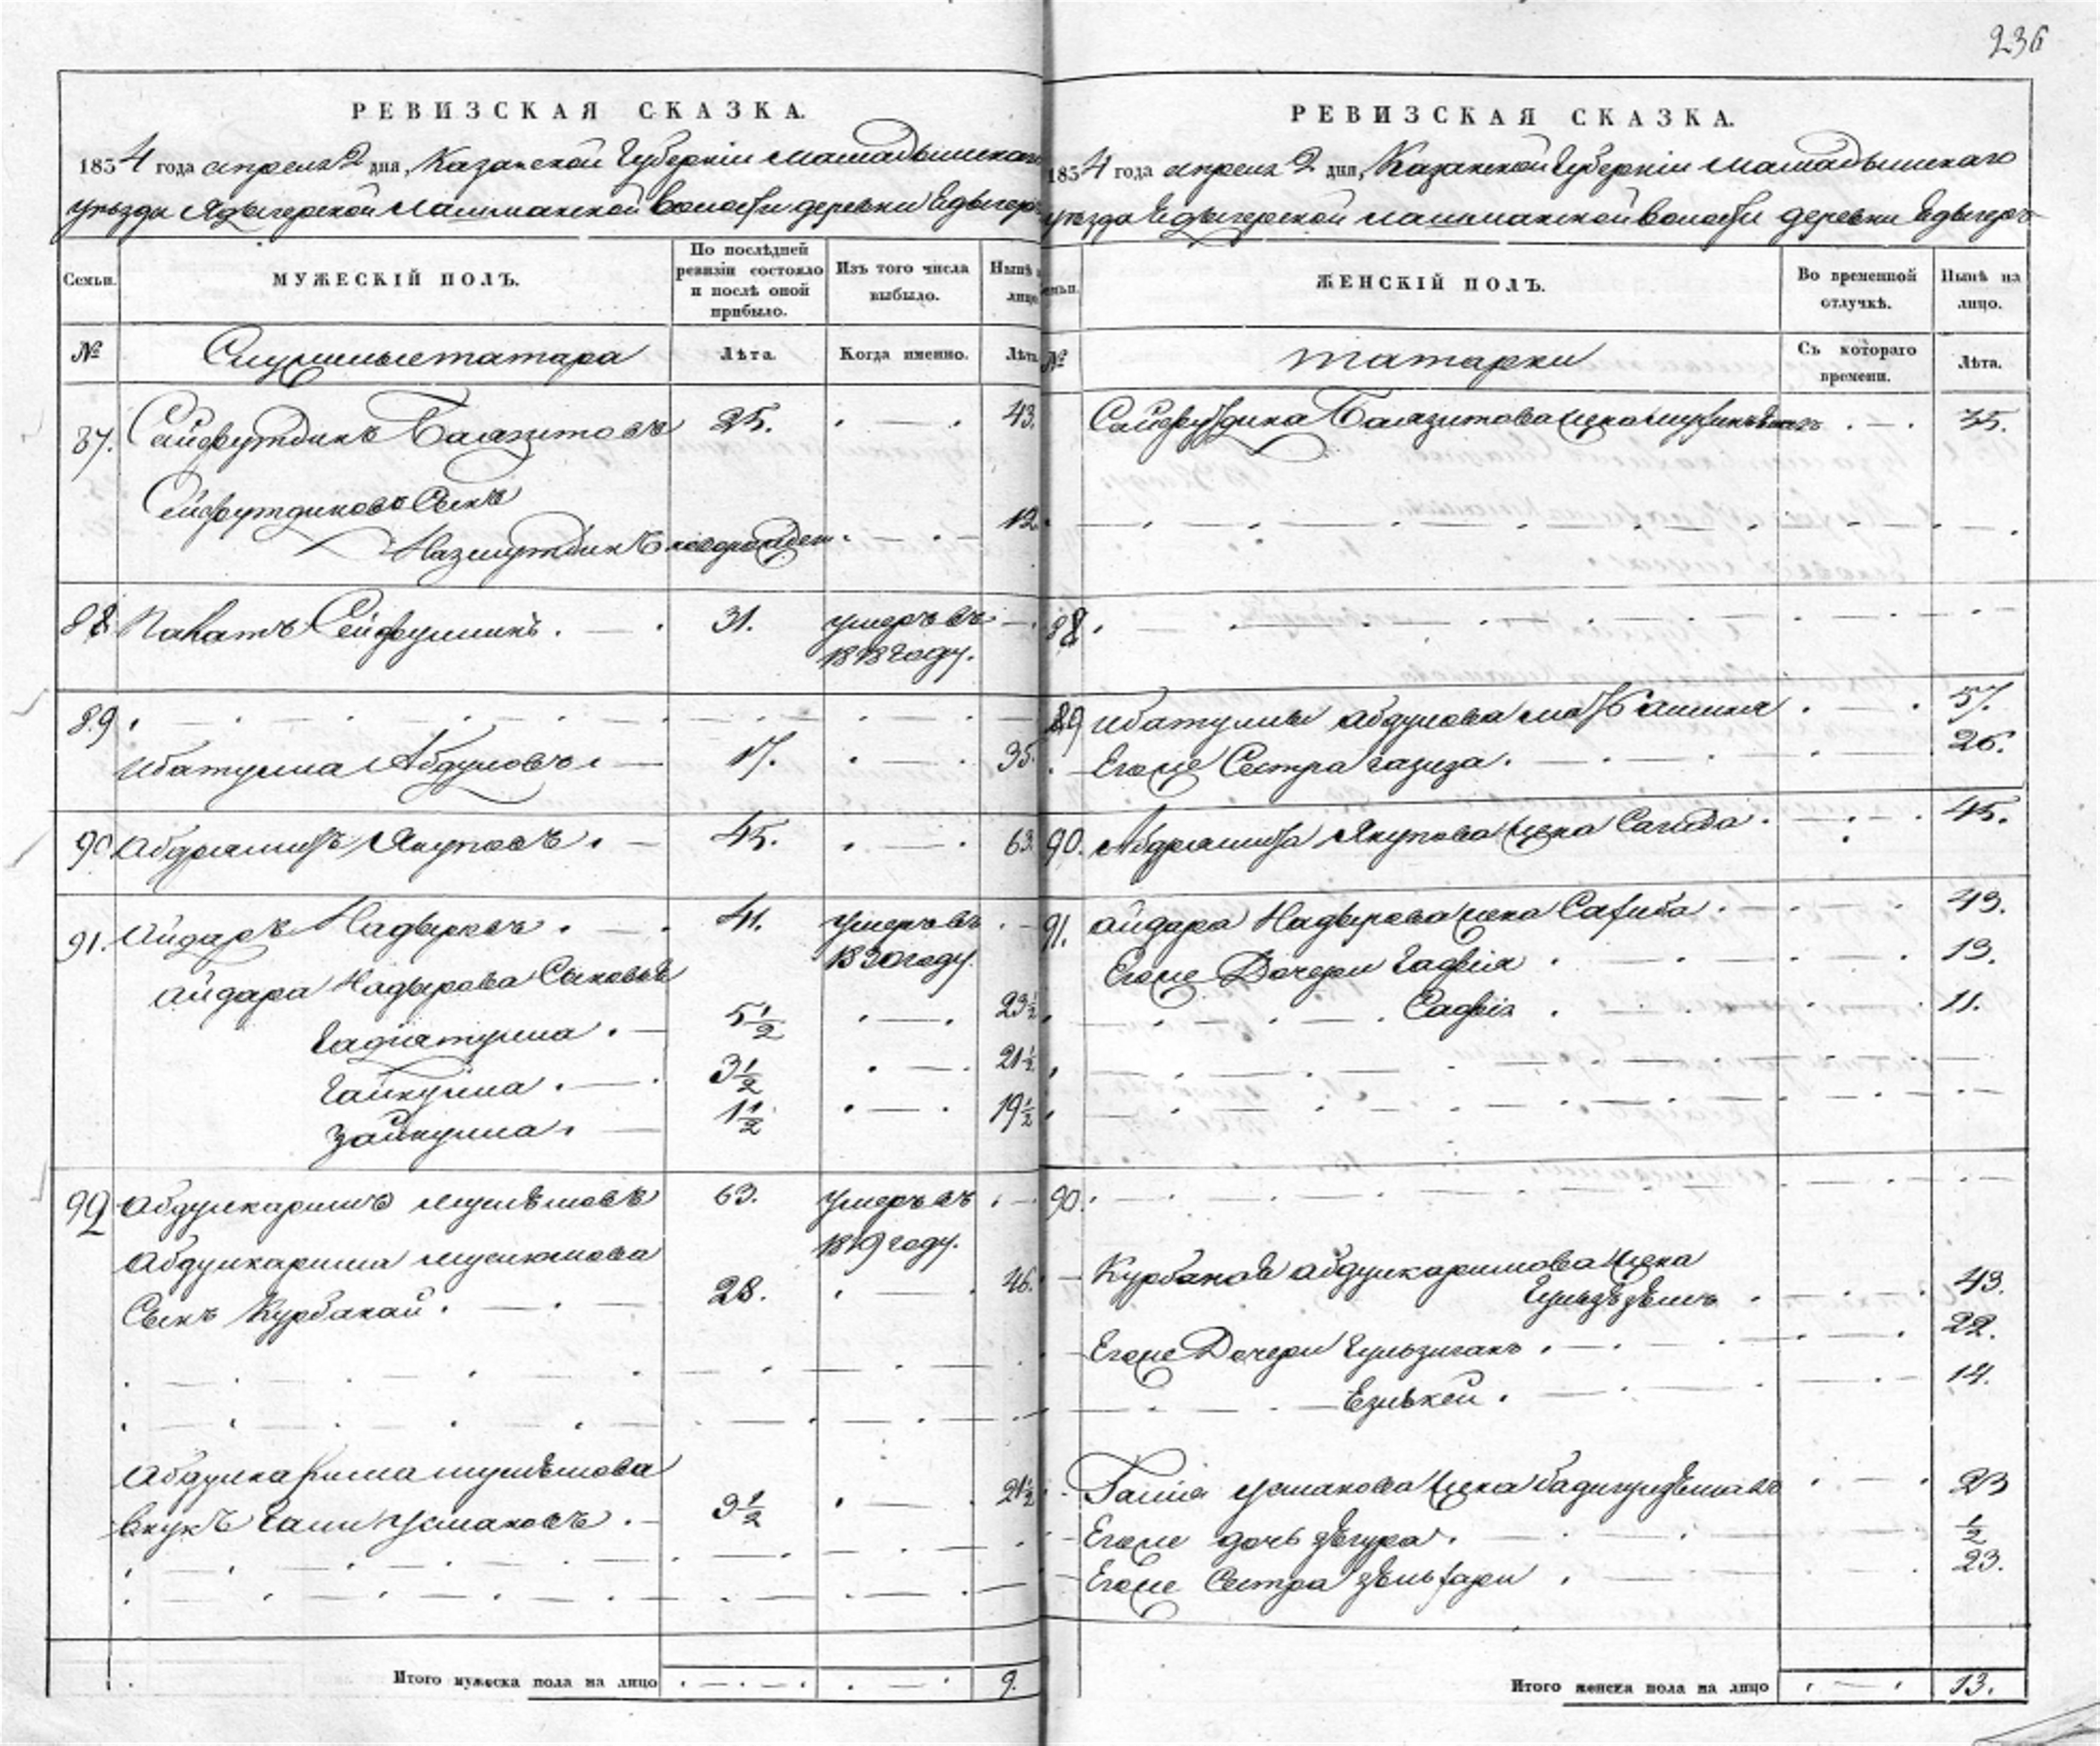 236
РЕВИЗСКАЯ СКАЗКА.
1854 года апреля 2 дня, Казанской Губернiи Мамадышскаго
уезда Ядыгерской Лашманской волости деревни Едыгеръ
Семьи.
МУЖЕСКIЙ ПОЛЪ.
По послѣдней ревизiи состояло и послѣ оной прибыло.
Изъ того числа выбыло.
Нынѣ лицо
№
Служилые татара
Лѣта.
Когда именно.
Лѣта
87. Сайфутдинъ Баязитовъ 25. 43.
Сейфутдиновъ Сынъ
Назмутдинъ новорожден 12
88. Сейфуллинъ. 31. умеръ въ
1848 году.
89
Ибатулла Абдуловъ 17. 35.
90 Абдрашитъ Якуповъ. 45. 63.
91. Айдаръ Надыровъ. 41. умеръ въ
18 году.
Айдара Надырова Сыновья
Гадiатулла. 5 1/2 23 1/2
Гайнулла. 3 1/2 21 1/2
Зайнулла. 1 1/2 19 1/2
92 Абдулкаримъ 63. умеръ въ
1849 году.
Абдулкарима Муслюмова
Сынъ Курбанай. 28. 46.
Абдулкарима
внукъ Гали Усмановъ. 3 1/2 21 1/2
Итого мужеска пола на лицо 9.
РЕВИЗСКАЯ СКАЗКА.
1854 года апреля 2 дня, Казанской Губернiи Мамадышскаго
уезда Едыгерской Лашманской волости деревни Едыгеръ
Семьи.
ЖЕНСКIЙ ПОЛЪ.
Во временной отлучкѣ.
Нынѣ на лицо.
№
татарки
Съ котораго времени.
Лѣта.
Сайфутдина Баязитова жена 35.
88.
89 Ибатуллы Абдулова мать 57.
Егоже Сестра Газиза. 26.
90. Абдрашита Якупова жена Сагида. 45.
91. Айдара Надырова жена Сахиба. 43.
Егоже Дочери Гафiя 13.
Сафiя 11.
90.
Курбаная Абдулкаримова жена
43.
Егоже Дочери Гульзиганъ. 22.
14.
Усманова жена 23
Егоже дочь 1/2
Егоже Сестра 23.
Итого женска пола на лицо 13.